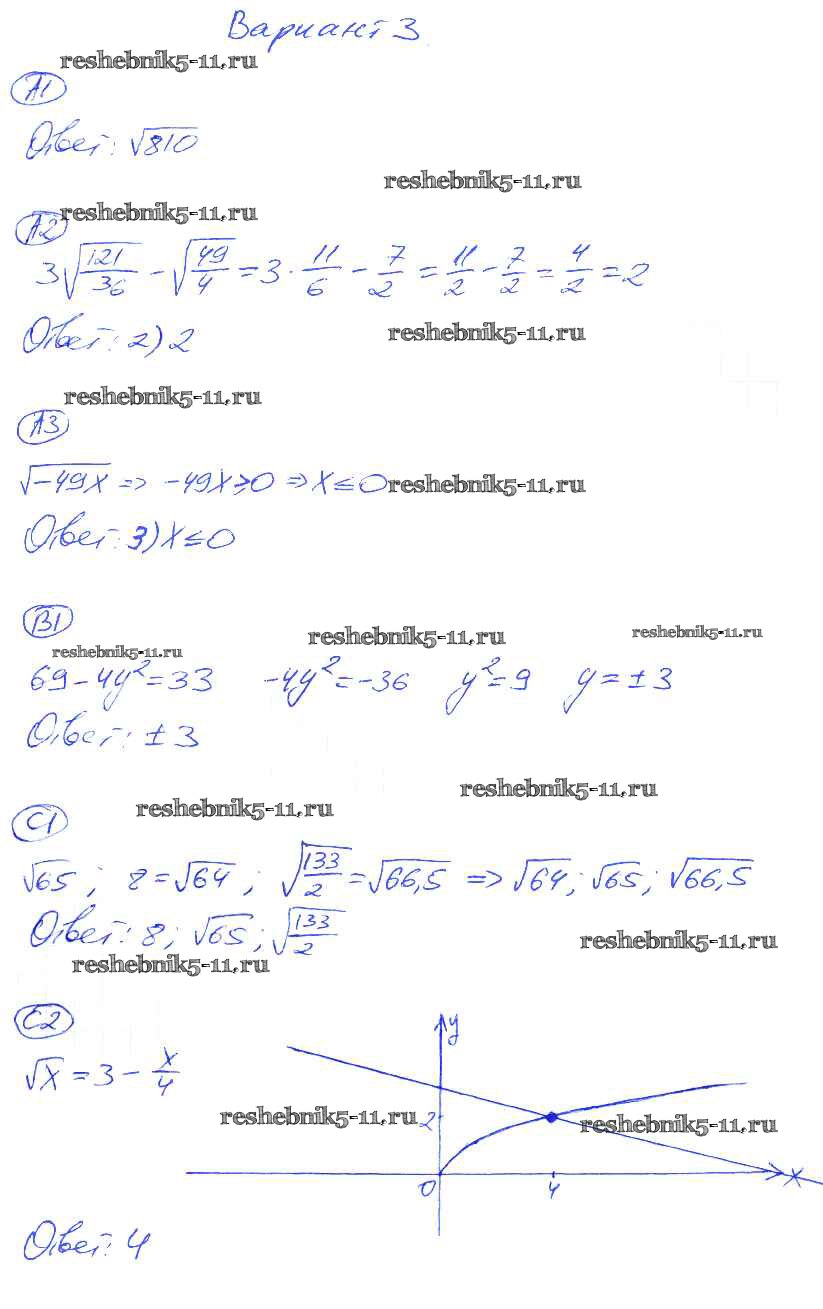 Вариант 3
reshebnik5-11.ru
А1
Ответ: √810
reshebnik5-11.ru
reshebnik5-11.ru
А2
3√(121/36) - √(49/4) = 3 · 11/6 - 7/2 = 11/2 - 7/2 = 4/2 = 2
Ответ: 2) 2
reshebnik5-11.ru
reshebnik5-11.ru
А3
√(-49x) => -49x ≥ 0 => x ≤ 0
reshebnik5-11.ru
Ответ: 3) x ≤ 0
В1
reshebnik5-11.ru
reshebnik5-11.ru
reshebnik5-11.ru
69 - 4y² = 33 -4y² = -36 y² = 9 y = ± 3
Ответ: ± 3
reshebnik5-11.ru
reshebnik5-11.ru
С1
√65 ; 8 = √64 ; √(133/2) = √66,5 => √64 ; √65 ; √66,5
Ответ: 8 ; √65 ; √(133/2)
reshebnik5-11.ru
reshebnik5-11.ru
С2
y
√x = 3 - x/4
reshebnik5-11.ru
2
reshebnik5-11.ru
x
0
4
Ответ: 4